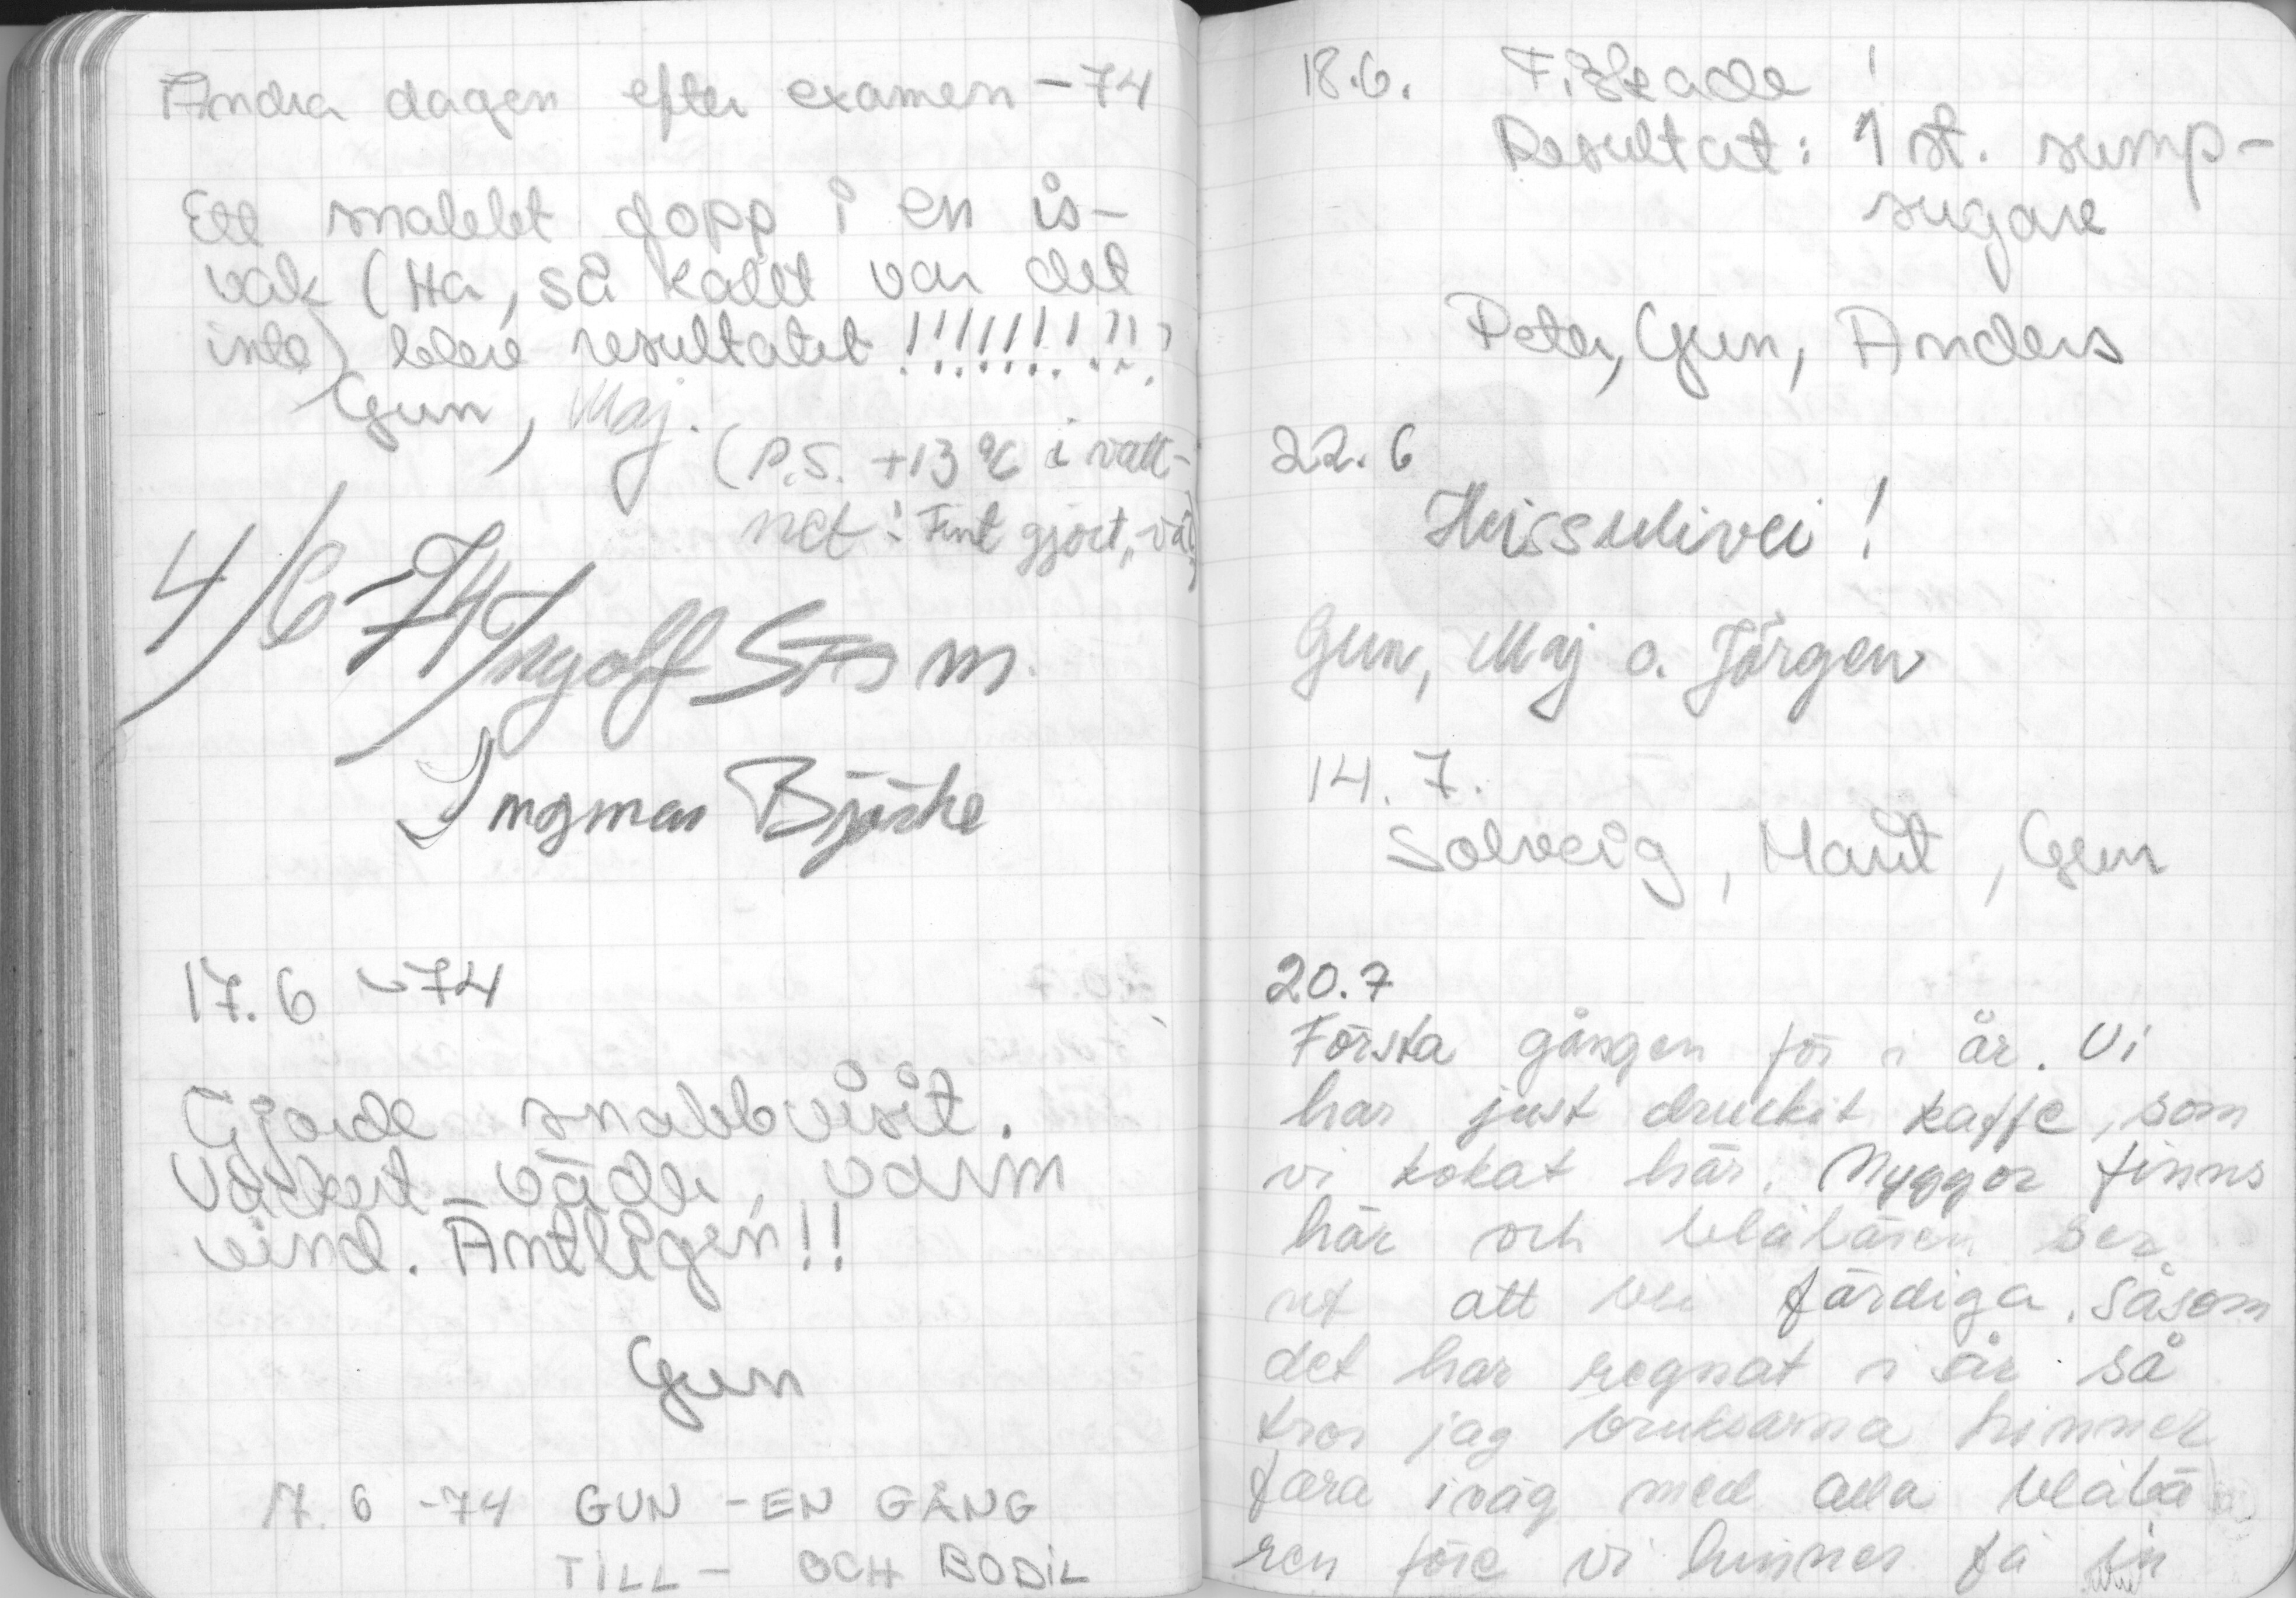 Andra dagen efter examen -74
Ett snabbt dopp i en is-
vak (Ha, så kallt var det
inte) blev resultatet !!!!!!!!!!!
Gun, Maj.
(P.S. +13 °C i vatt-
net! Fint gjort, va)
4/6-74 Ingolf Storm.
Ingmar Bjärke
17.6 -74
Gjorde snabbvisit.
Vackert väder, varm
vind. Äntligen!!
Gun
17.6 -74 GUN -EN GÅNG
TILL - OCH BODIL
18.6. Fiskade !
Resultat: 1 st. sump-
sugare
Peter, Gun, Anders
22.6
Heissulivei!
Gun, Maj o. Jörgen
14.7.
Solveig, Marit, Gun
20.7
Första gången för i år. Vi
har just druckit kaffe, som
vi kokat här. Myggor finns
här och blåbären ser
ut att bli färdiga. Såsom
det har regnat i år så
tror jag bruksarna hinner
fara iväg med alla blåbä
ren före vi hinner få